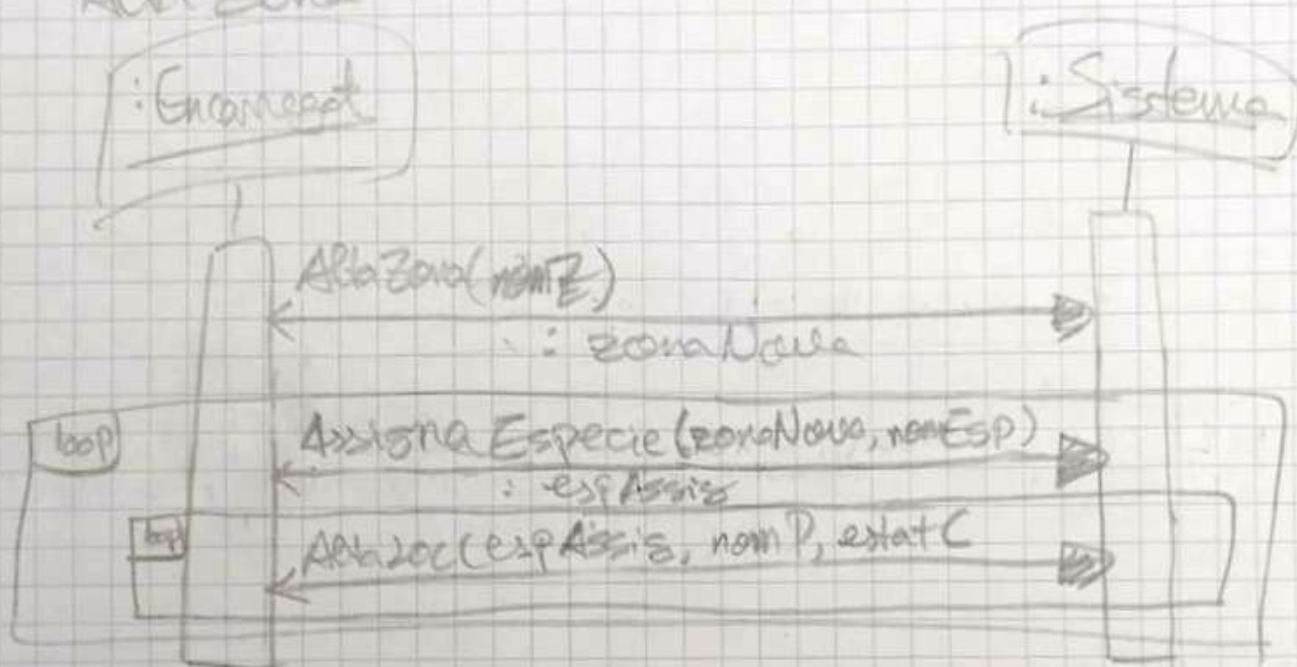 :Encarregat
:Sistema
AltaZona(nomZ)
: zonaNova
loop
Assigna Especie (zonaNova, nomEsp)
: espAssig
loop
AltaLoc(espAssig, nomP, estatC